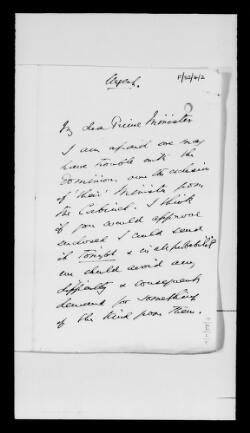 Urgent.
F/32/4/2
My dear Prime Minister
I am afraid we may
have trouble with the
Dominions over the exclusion
of 'their' Minister from
the Cabinet. I think
if you would approve
enclosed I could send
it tonight & in all probability
we should avoid any
difficulty & consequently
demand for something
of the kind from them.